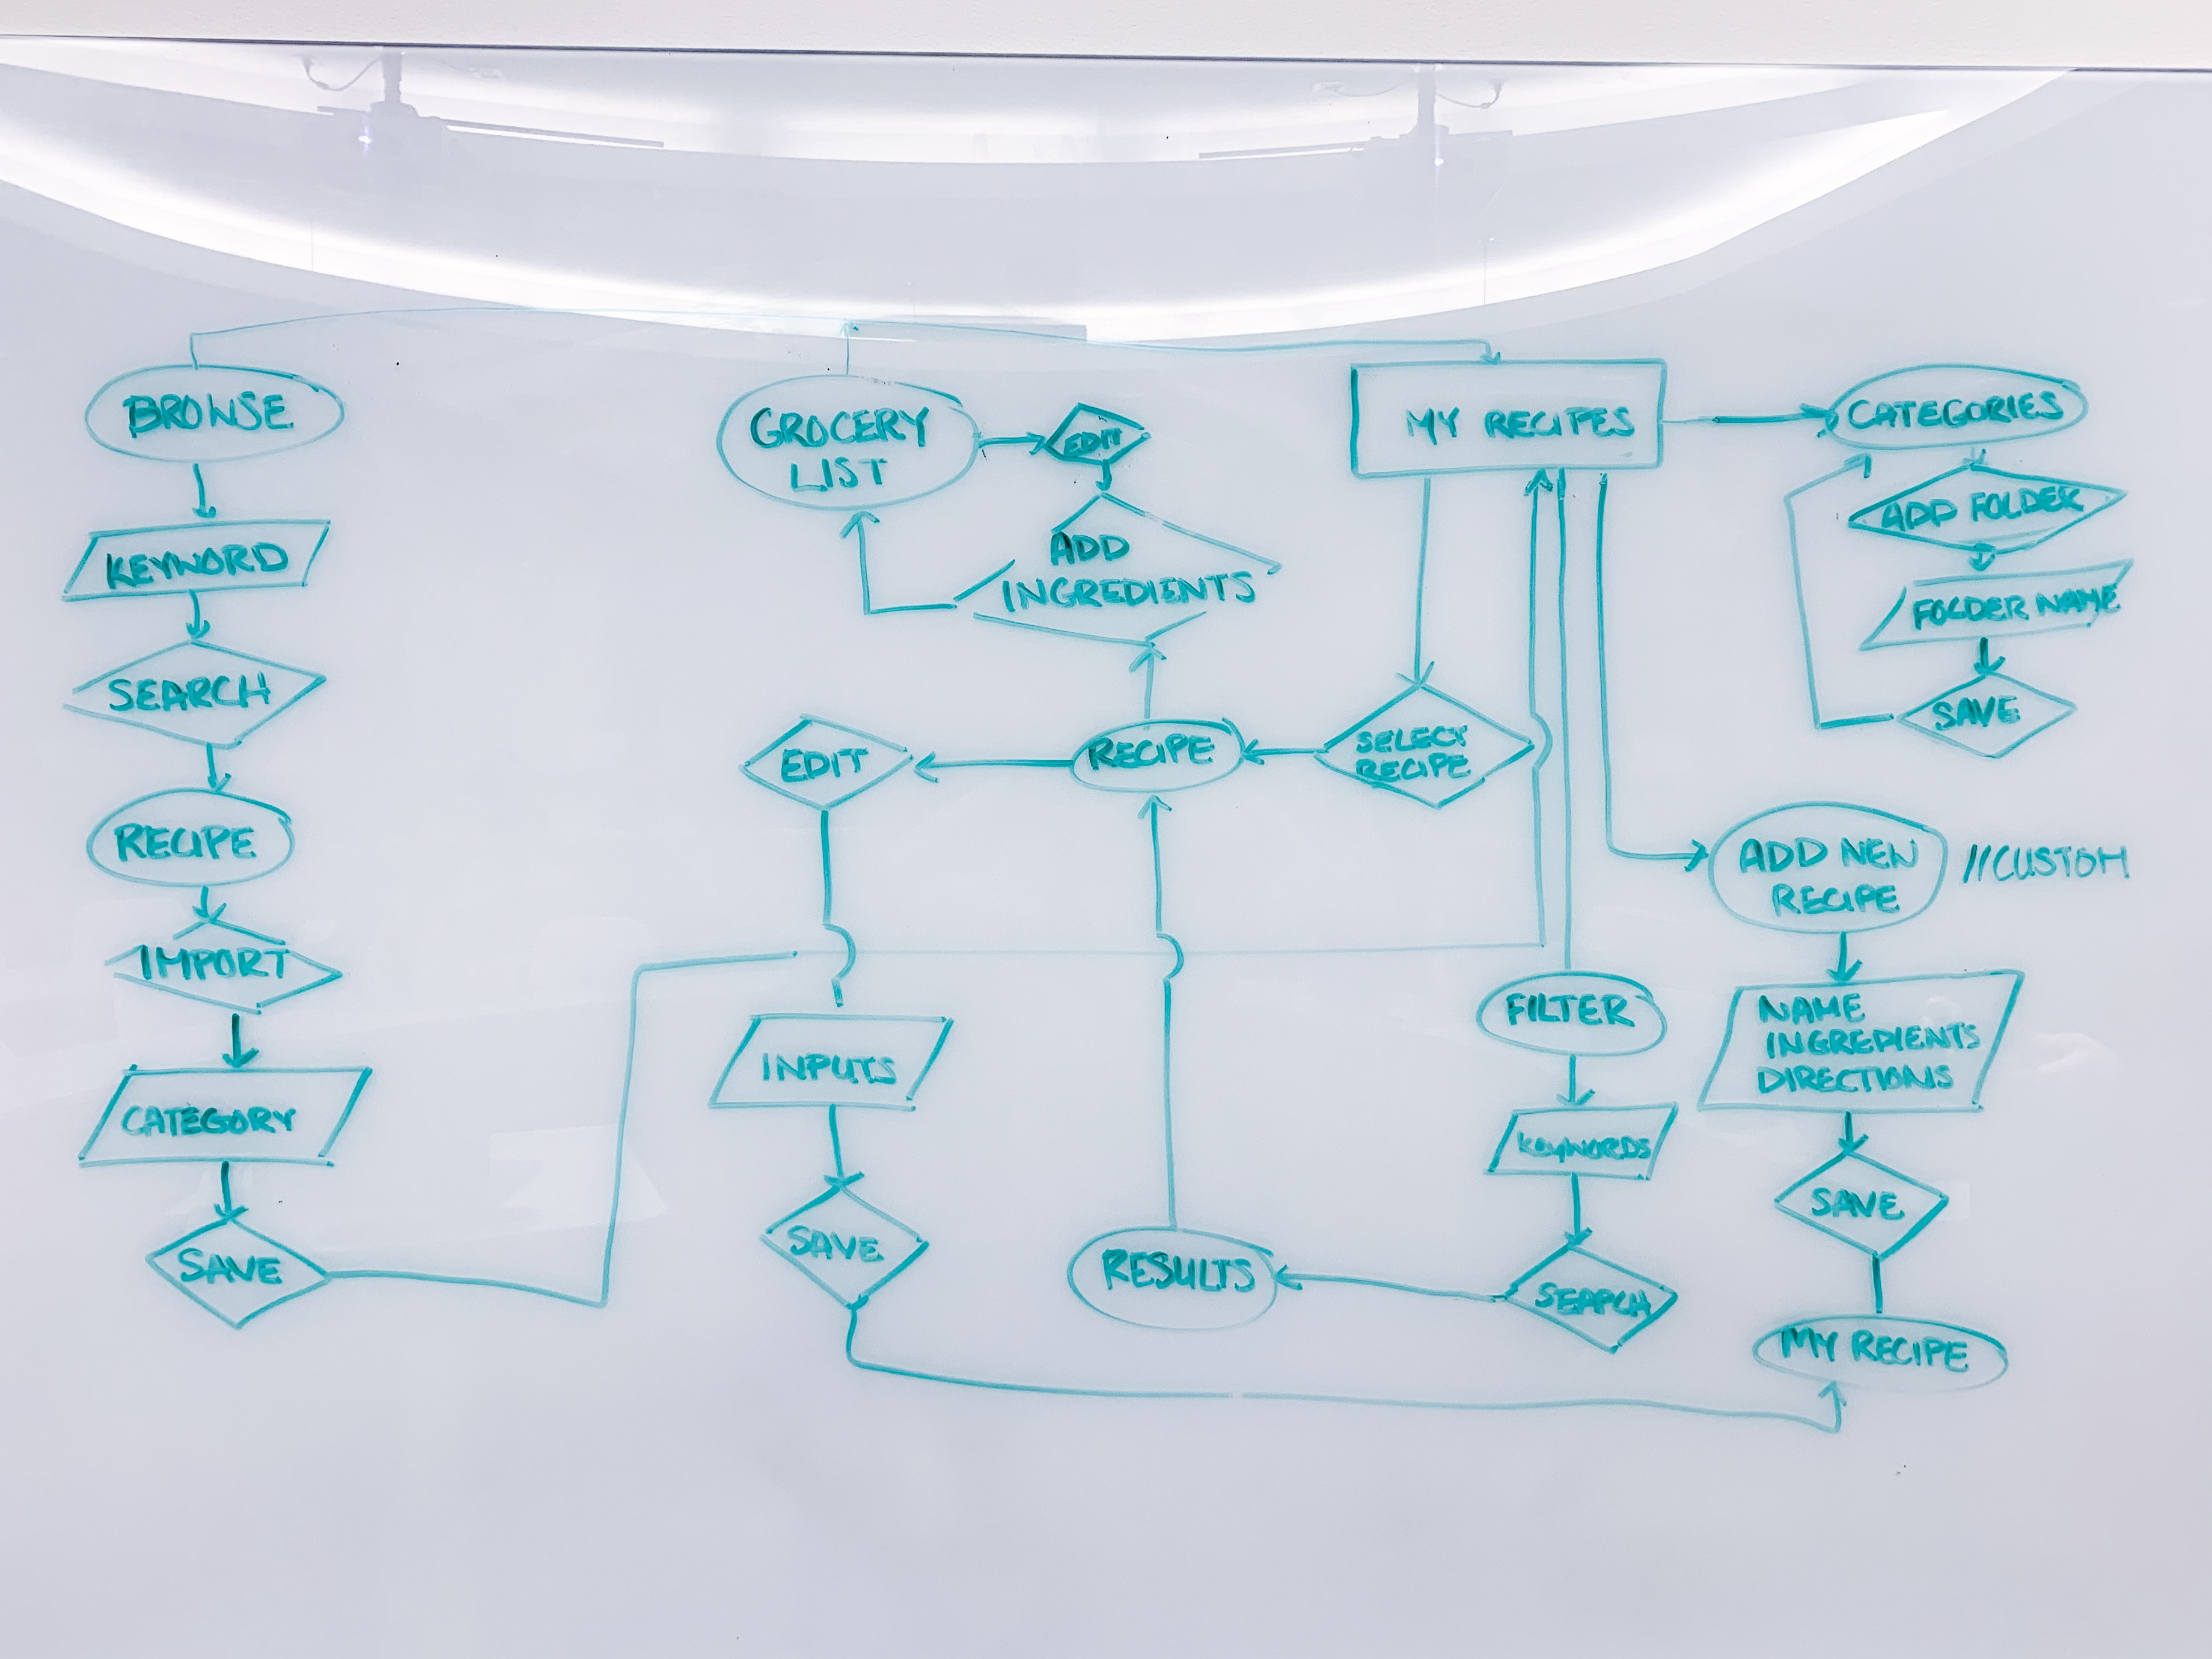 BROWSE
KEYWORD
SEARCH
RECIPE
IMPORT
CATEGORY
SAVE
GROCERY
LIST
EDIT
ADD
INGREDIENTS
EDIT
RECIPE
SELECT
RECIPE
INPUTS
SAVE
RESULTS
MY RECIPES
FILTER
KEYWORDS
SEARCH
CATEGORIES
ADD FOLDER
FOLDER NAME
SAVE
ADD NEW
RECIPE
//CUSTOM
NAME
INGREDIENTS
DIRECTIONS
SAVE
MY RECIPE